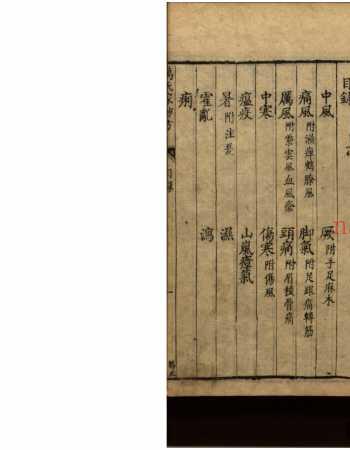 目錄
中風 厥附手足麻木
痛風附濕痺鶴膝風 脚氣附足跟痛轉筋
厲風附紫雲風血風瘡 頭痛附眉稜骨痛
中寒 傷寒附傷風
瘟疫 山嵐瘴氣
暑附注夏 濕
霍亂 瀉
痢
萬氏家抄方 目錄 一